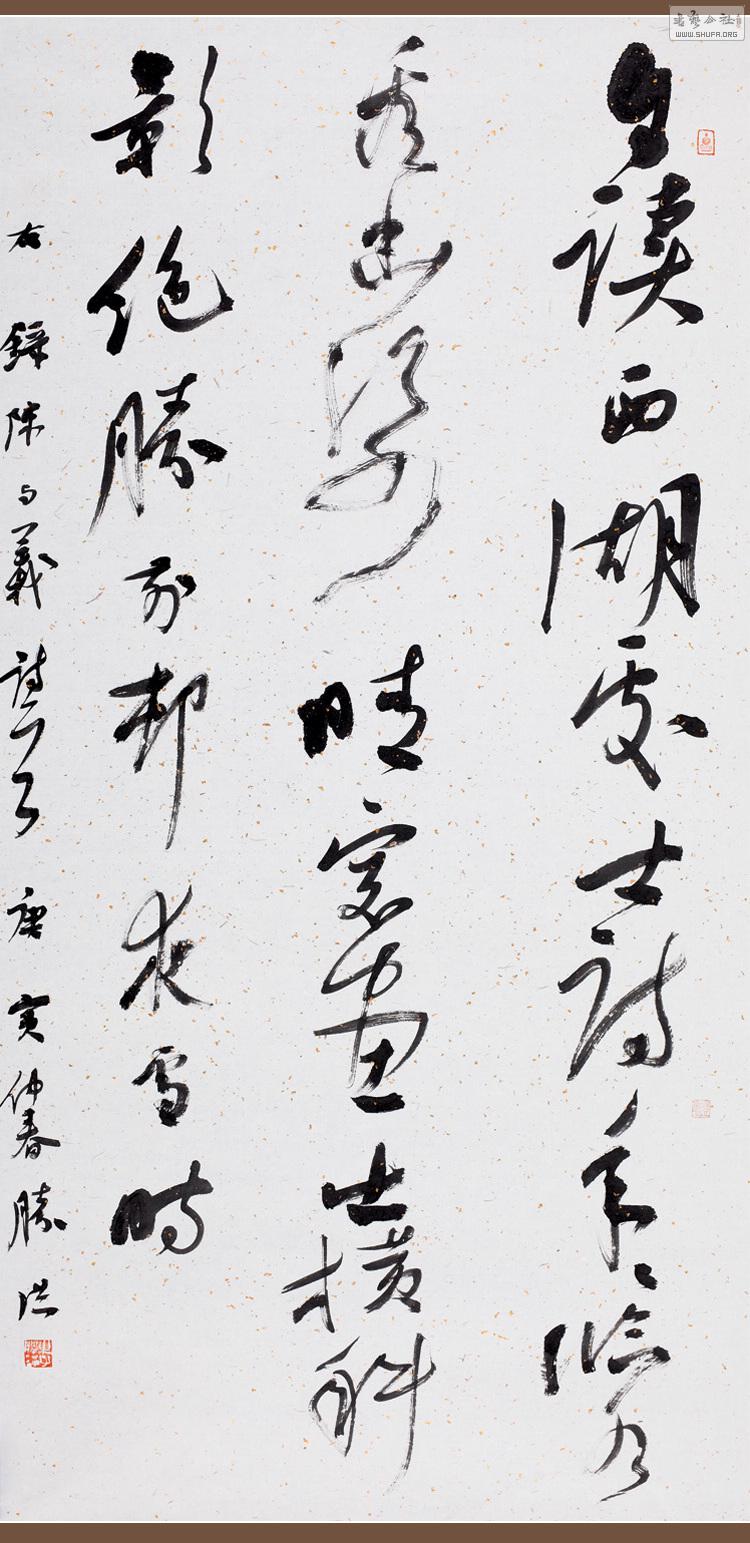 自讀西湖處士詩年々臨水
看幽姿晴窗畫出橫斜
影絕勝前邨夜雪時
右錄陳与義詩一首庚寅仲春勝洪
書藝公社
WWW.SHUFA.ORG